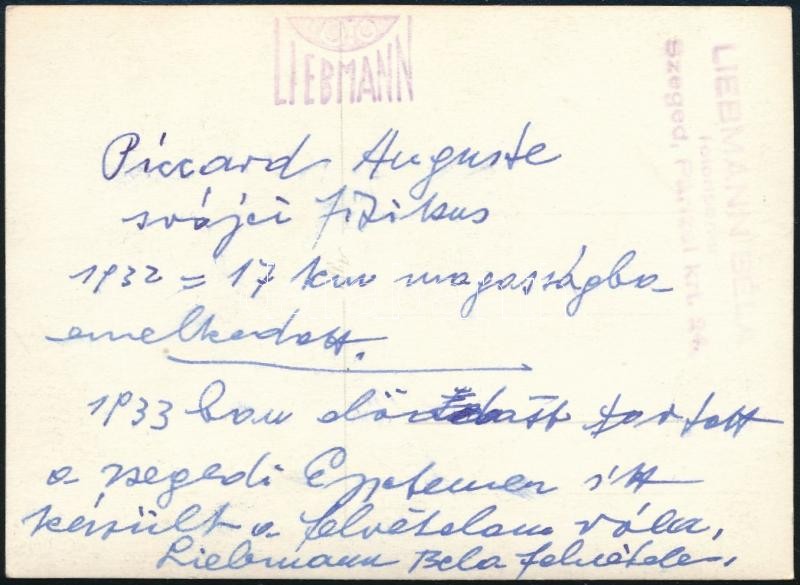 FOTO
LIEBMANN
LIEBMANN BÉLA
Szeged, krt. 24.
Piccard Auguste
svájci fizikus
1932 = 17 km magasságba
emelkedett.
1933 ban előadást tartott
a szegedi Egyetemen itt
készült a felvételem róla,
Liebmann Bela felvétele,